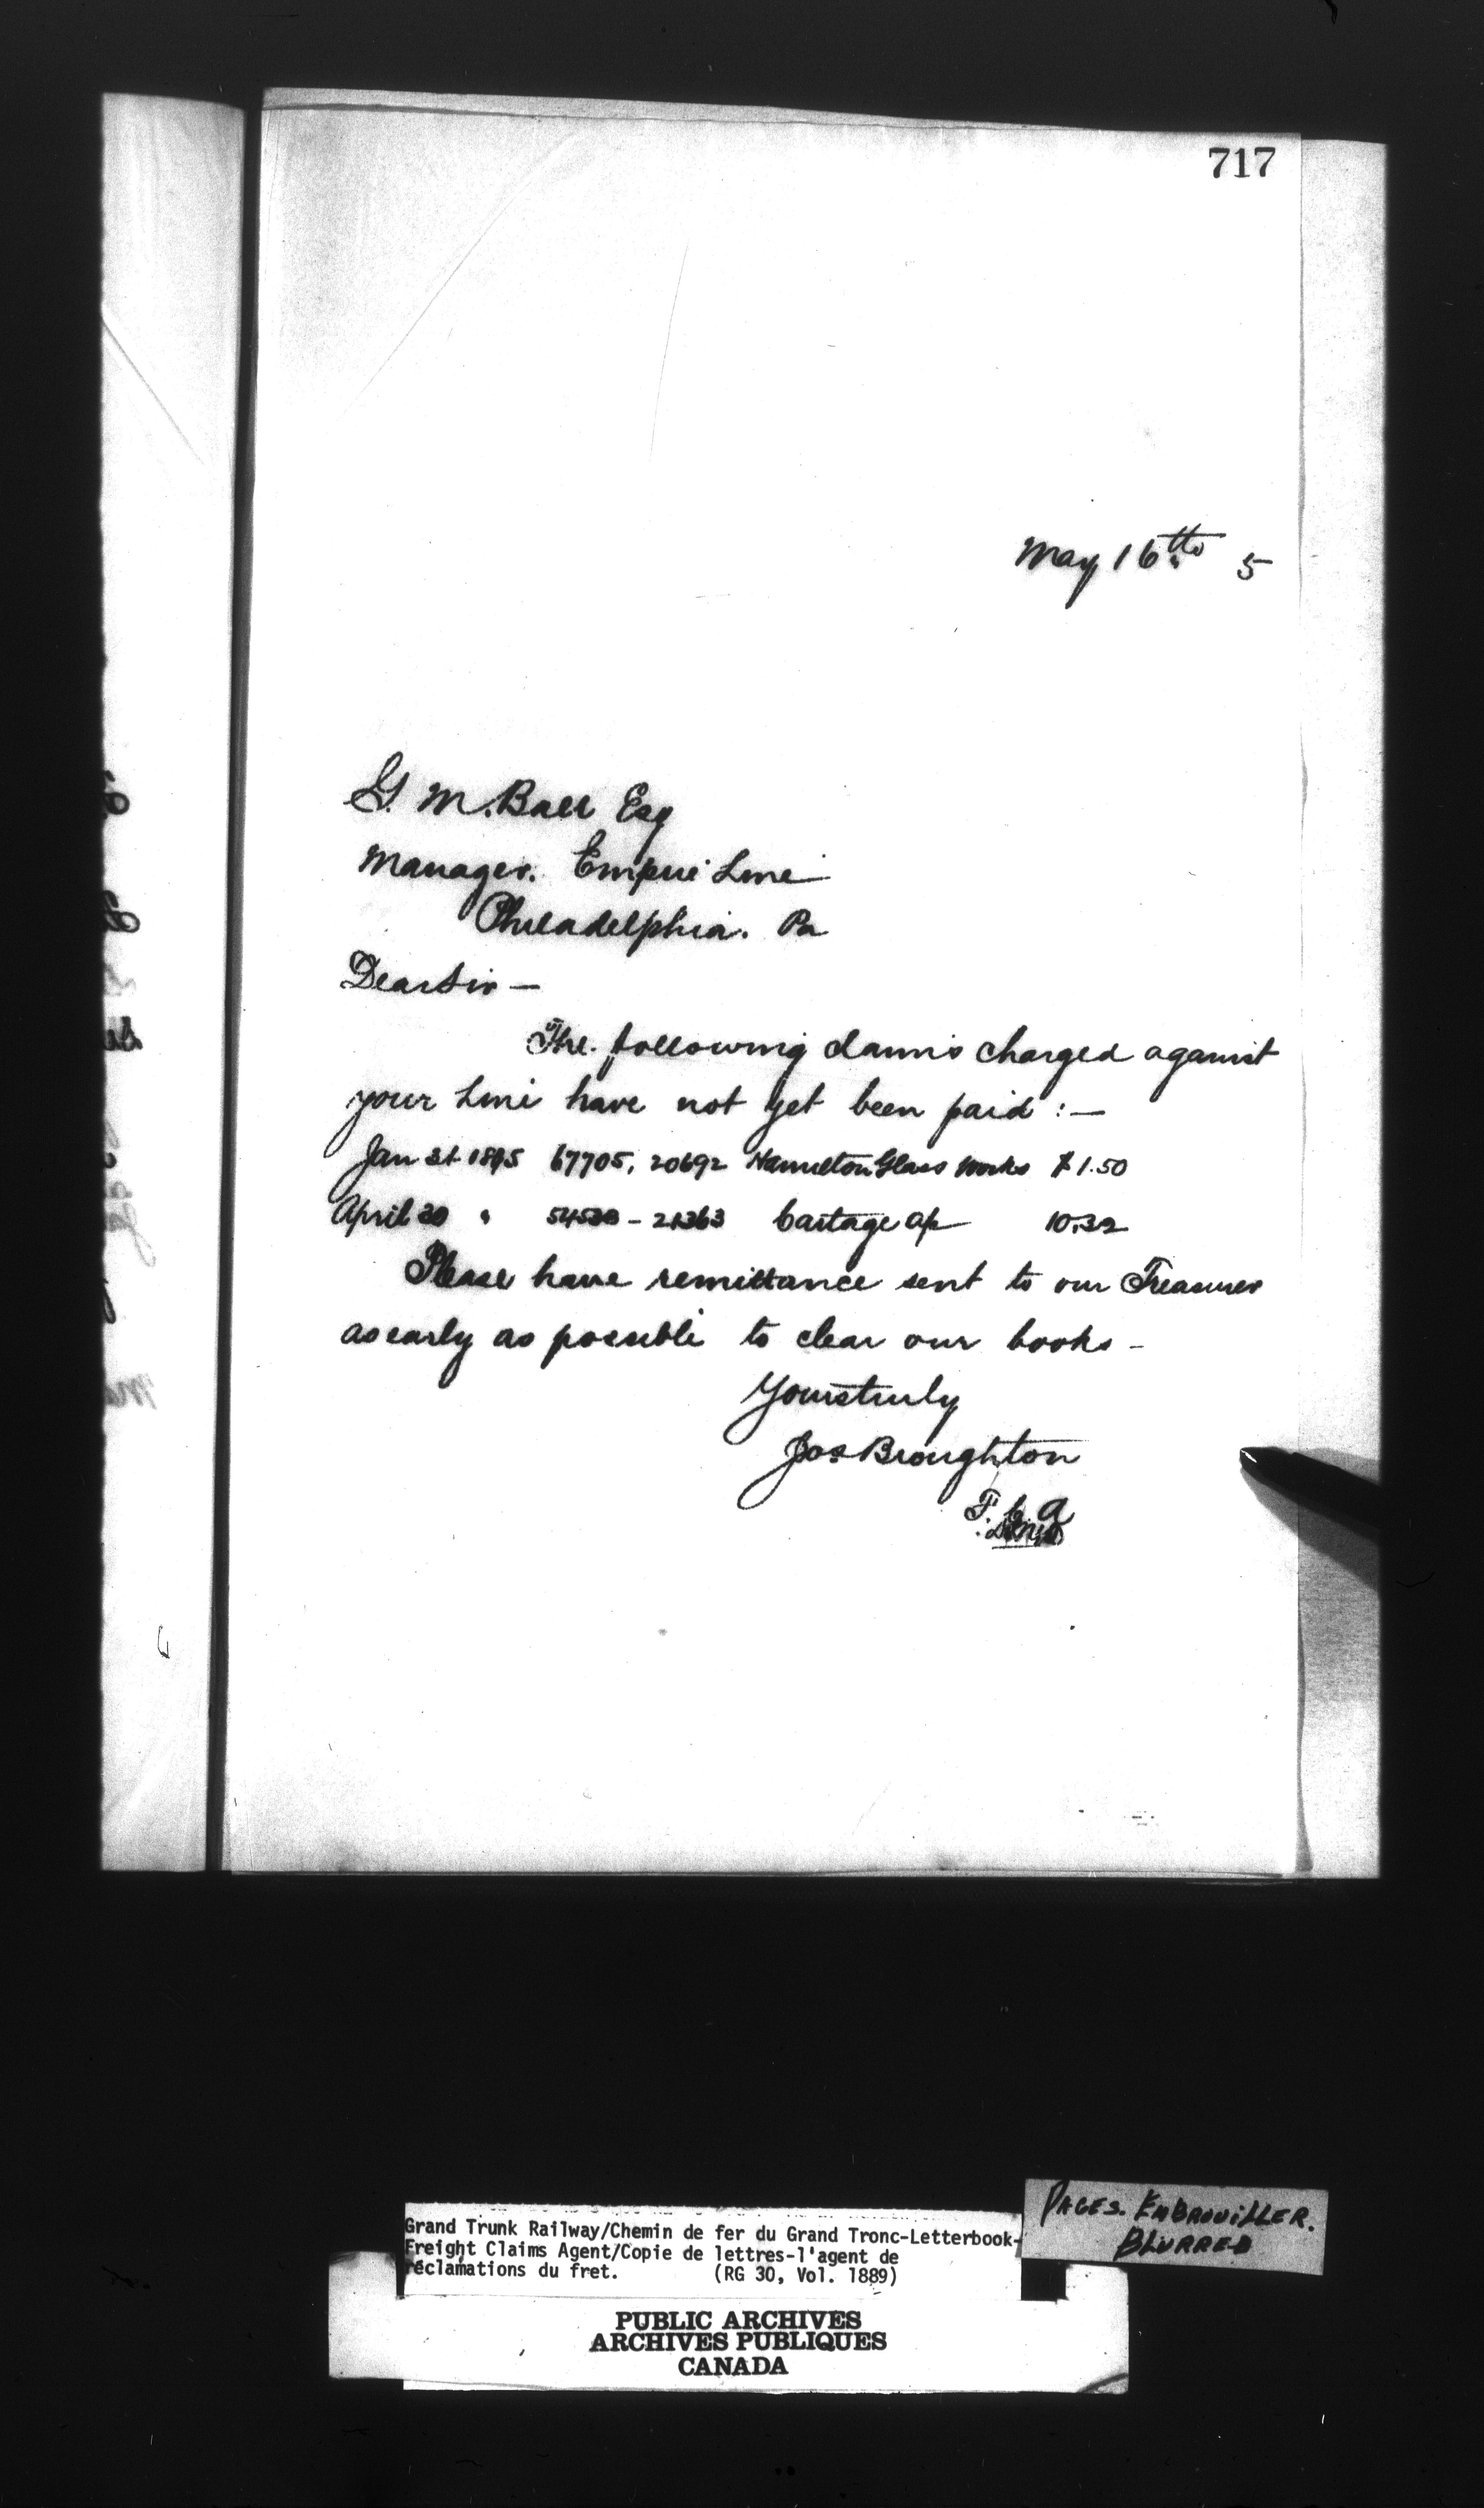 717
May 16th 5
G. M. Ball Esq
Manager. Empire Line
Philadelphia. Pa
Dear Sir —
The following claims charged against
your Line have not yet been paid :—
Jan 31 1895 67705, 20692 Hamilton Glass Works $1.50
April 30 " 54530 - 21363 Cartage a/c 10.32
Please have remittance sent to our Treasurer
as early as possible to clear our books -
Yours truly
Jos Broughton
F. C. A
Grand Trunk Railway/Chemin de fer du Grand Tronc-Letterbook-
Freight Claims Agent/Copie de lettres-l'agent de
réclamations du fret. (RG 30, Vol. 1889)
PAGES. EMBROUILLER.
BLURRED
PUBLIC ARCHIVES
ARCHIVES PUBLIQUES
CANADA